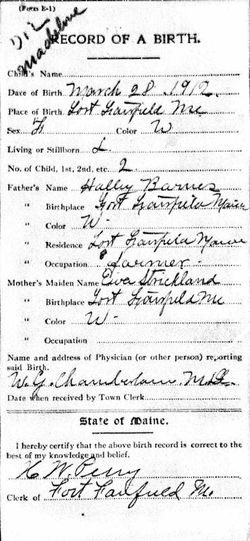 (Form E-1)
Madeline
RECORD OF A BIRTH.
Child's Name
Date of Birth March 28, 1912
Place of Birth Fort Fairfield Me
Sex F Color W
Living or Stillborn L
No. of Child, 1st, 2nd, etc. 2
Father's Name Halley Barnes
" Birthplace Fort Fairfield Maine
" Color W-
" Residence Fort Fairfield Maine
" Occupation Farmer
Mother's Maiden Name Eva Strickland
" Birthplace Fort Fairfield Me
" Color W-
" Occupation
Name and address of Physician (or other person) reporting
said Birth.
W. G. Chamberlain, M.D.
Date when received by Town Clerk
State of Maine.
I hereby certify that the above birth record is correct to the
best of my knowledge and belief.
H W. Perry
Clerk of Fort Fairfield Me.